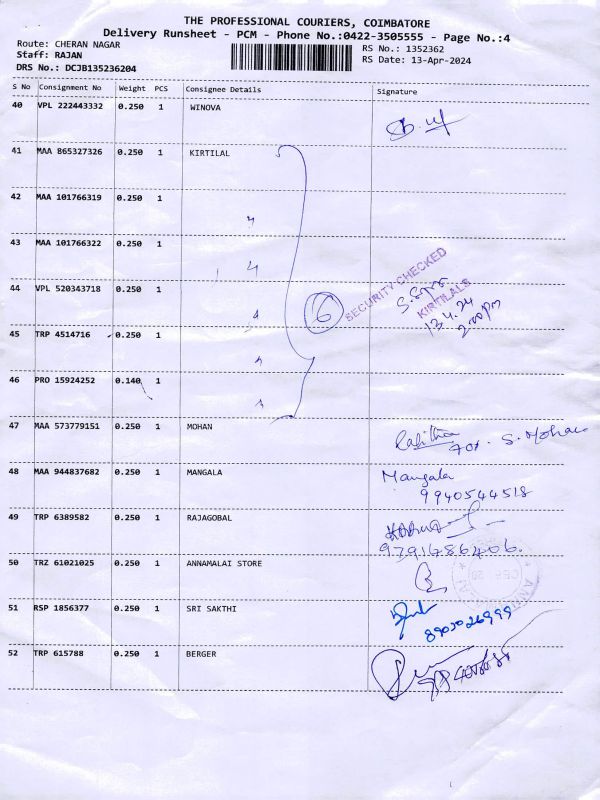 THE PROFESSIONAL COURIERS, COIMBATORE
Delivery Runsheet - PCM - Phone No.:0422-3505555 - Page No.:4
Route: CHERAN NAGAR RS No.: 1352362
Staff: RAJAN RS Date: 13-Apr-2024
DRS No.: DCJB135236204
S No Consignment No Weight PCS Consignee Details Signature
40 VPL 222443332 0.250 1 WINOVA
41 MAA 865327326 0.250 1 KIRTILAL
42 MAA 101766319 0.250 1
43 MAA 101766322 0.250 1
44 VPL 520343718 0.250 1
6 SECURITY CHECKED
KIRTILALS
13.4.24
2:00pm
45 TRP 4514716 0.250 1
46 PRO 15924252 0.140 1
47 MAA 573779151 0.250 1 MOHAN
Lalitha 701. S. Mohan
48 MAA 944837682 0.250 1 MANGALA
Mangala
9940544518
49 TRP 6389582 0.250 1 RAJAGOBAL
9791486406.
50 TRZ 61021025 0.250 1 ANNAMALAI STORE
51 RSP 1856377 0.250 1 SRI SAKTHI
8903026999
52 TRP 615788 0.250 1 BERGER